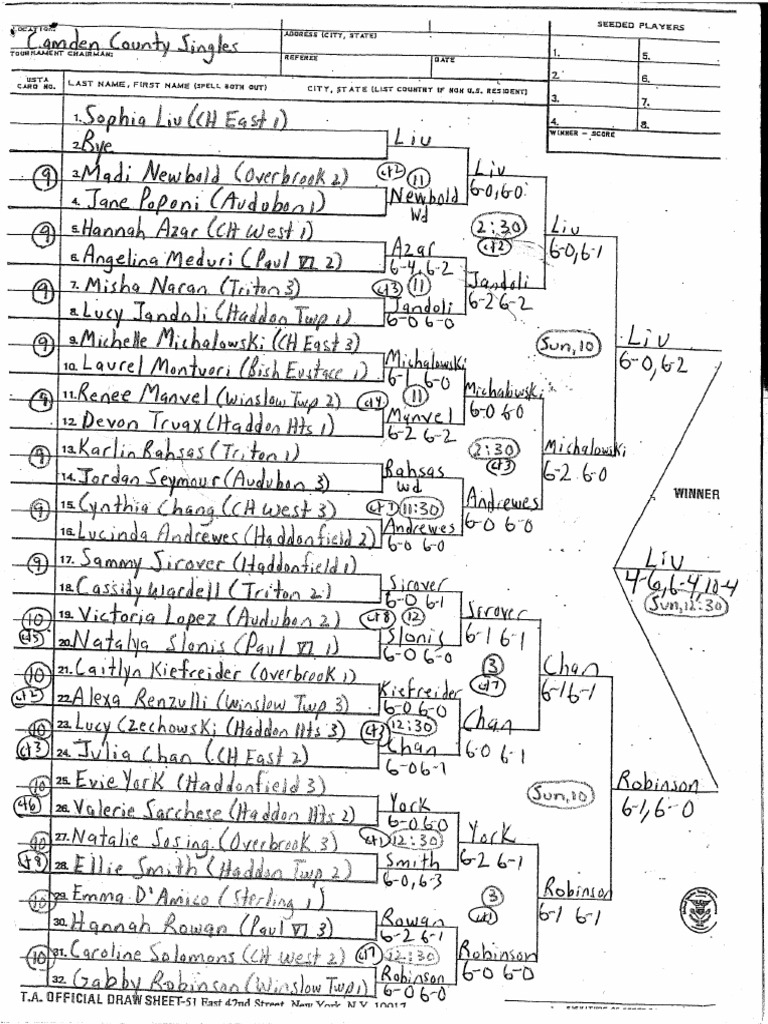 LOCATION:
Camden County Singles
ADDRESS (CITY, STATE)
SEEDED PLAYERS
TOURNAMENT CHAIRMAN:
REFEREE
DATE
1.
5.
2.
6.
3.
7.
4.
8.
WINNER - SCORE
USTA CARD NO.
LAST NAME, FIRST NAME (SPELL BOTH OUT)
CITY, STATE (LIST COUNTRY IF NON U.S. RESIDENT)
1. Sophia Liu (CH East 1)
2. Bye
9 3. Madi Newbold (Overbrook 2)
4. Jane Poponi (Audubon 1)
9 5. Hannah Azar (CH West 1)
6. Angelina Meduri (Paul VI 2)
9 7. Misha Naran (Triton 3)
8. Lucy Jandoli (Haddon Twp 1)
9 9. Michelle Michalowski (CH East 3)
10. Laurel Montuori (Bish Eustace 1)
9 11. Renee Manvel (Winslow Twp 2)
12. Devon Truax (Haddon Hts 1)
9 13. Karlin Bahsas (Triton 1)
14. Jordan Seymour (Audubon 3)
9 15. Cynthia Chang (CH West 3)
16. Lucinda Andrewes (Haddonfield 2)
9 17. Sammy Sirover (Haddonfield 1)
18. Cassidy Wardell (Triton 2)
10 19. Victoria Lopez (Audubon 2)
ct5 20. Natalya Slonis (Paul VI 1)
10 21. Caitlyn Kiefreider (Overbrook 1)
ct2 22. Alexa Renzulli (Winslow Twp 3)
10 23. Lucy Czechowski (Haddon Hts 3)
ct3 24. Julia Chan (CH East 2)
10 25. Evie York (Haddonfield 3)
ct6 26. Valerie Sarchese (Haddon Hts 2)
10 27. Natalie Sosing (Overbrook 3)
ct8 28. Ellie Smith (Haddon Twp 2)
10 29. Emma D'Amico (Sterling 1)
30. Hannah Rowan (Paul VI 3)
10 31. Caroline Solomons (CH West 2)
32. Gabby Robinson (Winslow Twp 1)
Liu
ct2 11
Newbold
wd
Azar
6-4, 6-2
ct3 11
Jandoli
6-0 6-0
Michalowski
6-1 6-0
ct4 11
Manvel
6-2 6-2
Bahsas
wd
ct1 11:30
Andrewes
6-0 6-0
Sirover
6-0 6-1
ct8 12
Slonis
6-0 6-0
Kiefreider
6-0 6-0
ct3 12:30
Chan
6-0 6-1
York
6-0 6-0
ct1 12:30
Smith
6-0, 6-3
Rowan
6-2 6-1
ct7 12:30
Robinson
6-0 6-0
Liu
6-0, 6-0
2:30
ct2
Jandoli
6-2 6-2
Michalowski
6-0 6-0
2:30
ct3
Andrewes
6-0 6-0
Sirover
6-1 6-1
3
ct7
Chan
6-0 6-1
York
6-2 6-1
3
Robinson
6-0 6-0
Liu
6-0, 6-1
Sun, 10
Michalowski
6-2 6-0
Chan
6-1 6-1
Sun, 10
Robinson
6-1 6-1
Liu
6-0, 6-2
WINNER
Liu
4-6, 6-4, 10-4
Sun, 12:30
Robinson
6-1, 6-0
T.A. OFFICIAL DRAW SHEET-51 East 42nd Street, New York, N.Y. 10017